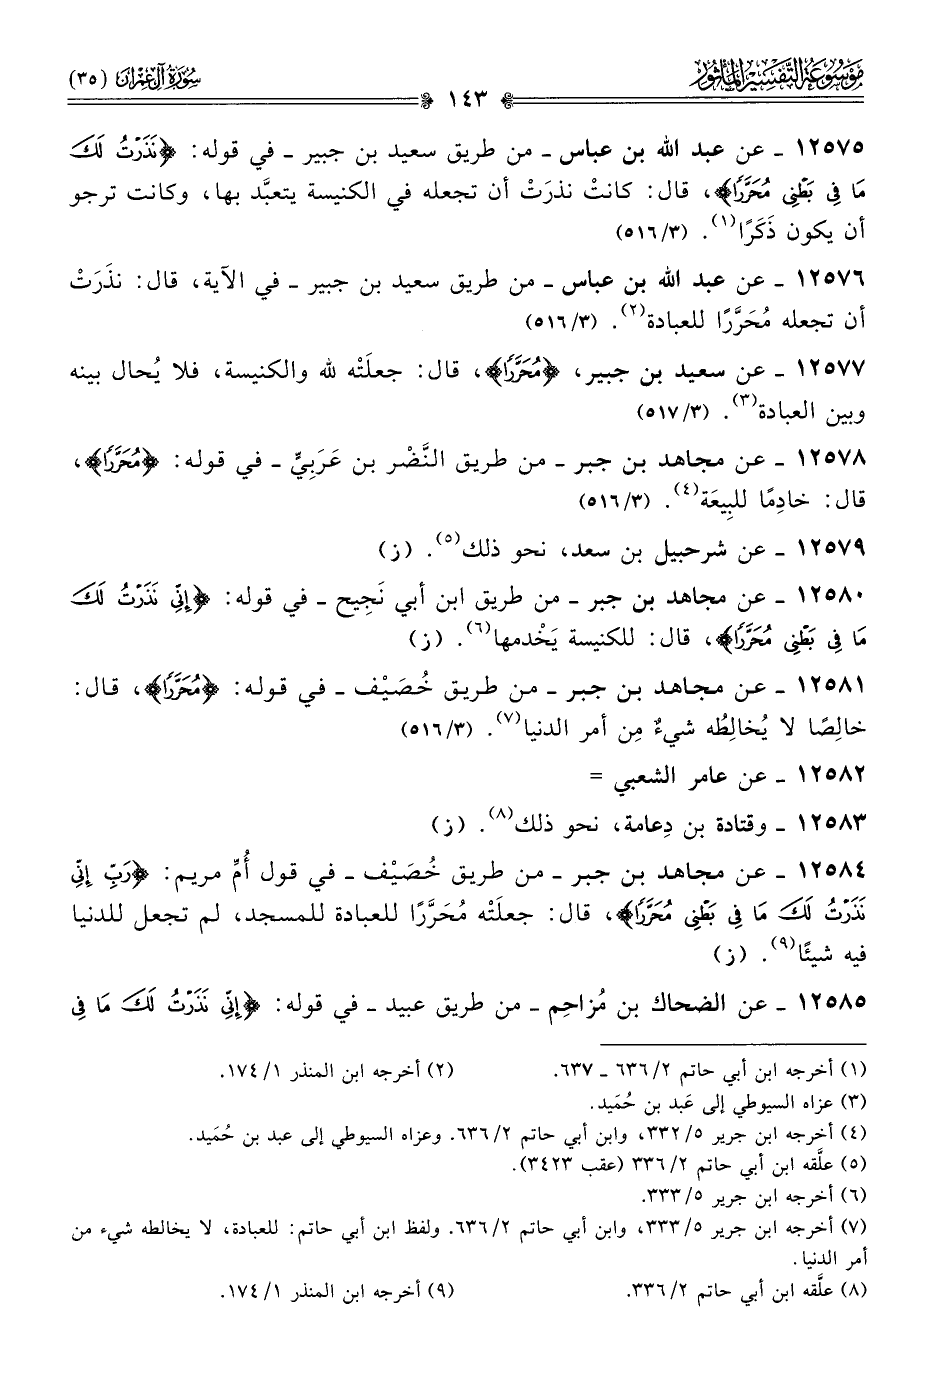 مَوْسُوعَة التَّفْسِير المَأْثُور
سُورَةُ آلِ عِمْرَان (٣٥)
١٤٣
١٢٥٧٥ ـ عن عبد الله بن عباس ـ من طريق سعيد بن جبير ـ في قوله: ﴿نَذَرْتُ لَكَ
مَا فِي بَطْنِي مُحَرَّرًا﴾، قال: كانتْ نذرَتْ أن تجعله في الكنيسة يتعبَّد بها، وكانت ترجو
أن يكون ذَكَرًا(١). (٥١٦/٣)
١٢٥٧٦ ـ عن عبد الله بن عباس ـ من طريق سعيد بن جبير ـ في الآية، قال: نذَرَتْ
أن تجعله مُحَرَّرًا للعبادة(٢). (٥١٦/٣)
١٢٥٧٧ ـ عن سعيد بن جبير، ﴿مُحَرَّرًا﴾، قال: جعلَتْه لله والكنيسة، فلا يُحال بينه
وبين العبادة(٣). (٥١٧/٣)
١٢٥٧٨ ـ عن مجاهد بن جبر ـ من طريق النَّضْر بن عَرَبِيٍّ ـ في قوله: ﴿مُحَرَّرًا﴾،
قال: خادِمًا للبِيعَة(٤). (٥١٦/٣)
١٢٥٧٩ ـ عن شرحبيل بن سعد، نحو ذلك(٥). (ز)
١٢٥٨٠ ـ عن مجاهد بن جبر ـ من طريق ابن أبي نَجِيح ـ في قوله: ﴿إِنِّي نَذَرْتُ لَكَ
مَا فِي بَطْنِي مُحَرَّرًا﴾، قال: للكنيسة يَخْدمها(٦). (ز)
١٢٥٨١ ـ عن مجاهد بن جبر ـ من طريق خُصَيْف ـ في قوله: ﴿مُحَرَّرًا﴾، قال:
خالِصًا لا يُخالِطُه شيءٌ مِن أمر الدنيا(٧). (٥١٦/٣)
١٢٥٨٢ ـ عن عامر الشعبي =
١٢٥٨٣ ـ وقتادة بن دِعامة، نحو ذلك(٨). (ز)
١٢٥٨٤ ـ عن مجاهد بن جبر ـ من طريق خُصَيْف ـ في قول أُمِّ مريم: ﴿رَبِّ إِنِّي
نَذَرْتُ لَكَ مَا فِي بَطْنِي مُحَرَّرًا﴾، قال: جعلَتْه مُحَرَّرًا للعبادة للمسجد، لم تجعل للدنيا
فيه شيئًا(٩). (ز)
١٢٥٨٥ ـ عن الضحاك بن مُزاحِم ـ من طريق عبيد ـ في قوله: ﴿إِنِّي نَذَرْتُ لَكَ مَا فِي
(١) أخرجه ابن أبي حاتم ٢/ ٦٣٦ ـ ٦٣٧. (٢) أخرجه ابن المنذر ١/ ١٧٤.
(٣) عزاه السيوطي إلى عَبد بن حُمَيد.
(٤) أخرجه ابن جرير ٥/ ٣٣٢، وابن أبي حاتم ٢/ ٦٣٦. وعزاه السيوطي إلى عبد بن حُمَيد.
(٥) علَّقه ابن أبي حاتم ٢/ ٣٣٦ (عقب ٣٤٢٣).
(٦) أخرجه ابن جرير ٥/ ٣٣٣.
(٧) أخرجه ابن جرير ٥/ ٣٣٣، وابن أبي حاتم ٢/ ٦٣٦. ولفظ ابن أبي حاتم: للعبادة، لا يخالطه شيء من
أمر الدنيا.
(٨) علَّقه ابن أبي حاتم ٢/ ٣٣٦. (٩) أخرجه ابن المنذر ١/ ١٧٤.